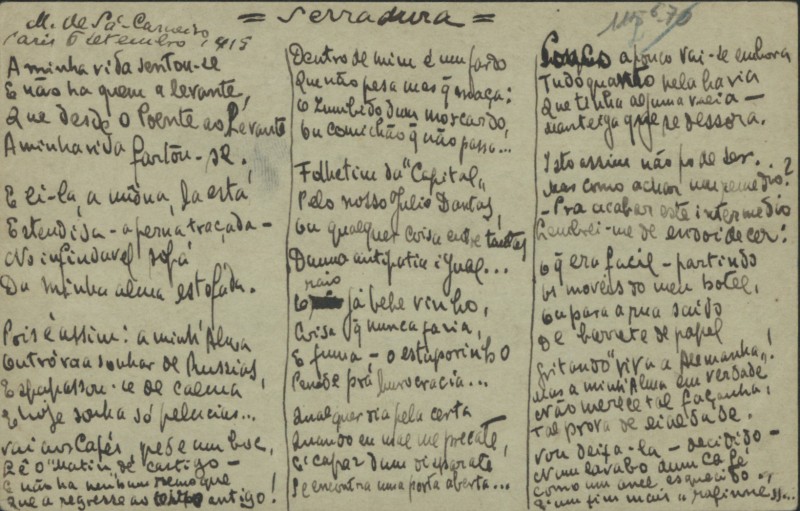 = Serradura =
M. de Sá-Carneiro
Paris 6 setembro 1915
A minha vida sentou-se
E não ha quem a levante,
Que desde o Poente ao Levante
A minha vida fartou-se.
E ei-la, a mona, la está
Estendida - a perna traçada -
No infindavel sofá
Da minha alma estofada.
Pois é assim: a minh'Alma
Outróra a sonhar de Russias,
Espapassou-se de calma
E hoje sonha só pelucias...
Vai aos Cafés, pede um boc,
Lê o "Matin" de castigo -
E não ha nenhum remoque
Que a regresse ao antigo!
Dentro de mim é um fardo
Que não pesa mas q̃ maça:
O zumbido dum moscardo,
Ou comichão q̃ não passa...
Folhetim da "Capital"
Pelo nosso Julio Dantas,
Ou qualquer coisa entre tantas
Duma antipatia igual...
O raio já bebe vinho,
Coisa q̃ nunca fazia,
E fuma - o estaporinho
Pende prá burocracia...
Qualquer dia pela certa
Quando eu mal me precate,
É capaz dum disparate
Se encontra uma porta aberta...
Pouco a pouco vai-se embora
Tudo quanto nela havia
Que tinha alguma valia -
Manteiga que se dessora.
Isto assim não pode ser...
Mas como achar um remedio?
- Pra acabar este intermedio
Lembrei-me de endoidecer:
O q̃ era facil - partindo
Os moveis do meu hotel,
Ou para a rua saindo
De barrete de papel
Gritando "viva a Alemanha"!
Mas a minh'Alma em verdade
Não merece tal façanha,
Tal prova de lealdade.
Vou deixa-la - decidido -
No lavabo dum Café
Como um anel esquecido.
É um fim mais raffiné...